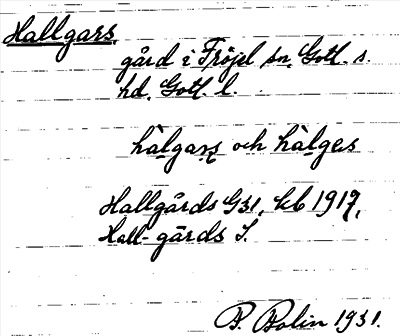 Hallgars
gård i Fröjel sn. Gotl. s.
hd. Gotl. l.
hàlgaṛs och hàlges
Hallgårds G31, kb 1917,
Hall-gårds S.
P. Bolin 1931.